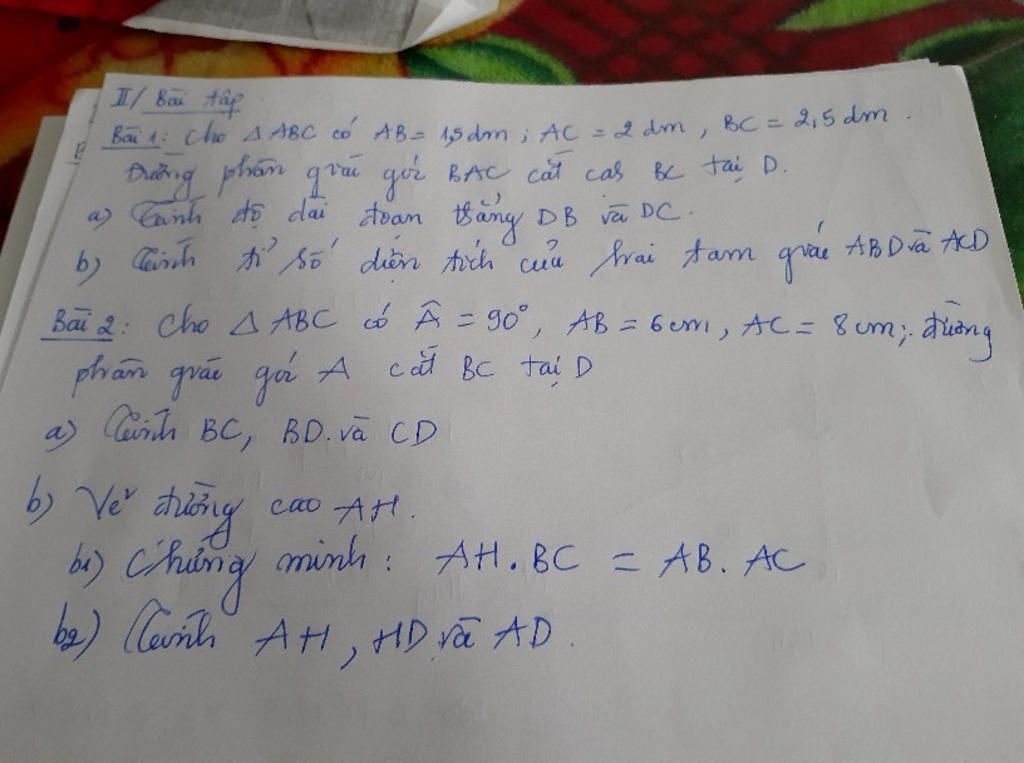 II/ Bài tập
Bài 1: Cho △ ABC có AB = 1,5 dm ; AC = 2 dm , BC = 2,5 dm .
Đường phân giác góc BAC cắt cạnh BC tại D.
a) Tính độ dài đoạn thẳng DB và DC.
b) Tính tỉ số diện tích của hai tam giác ABD và ACD
Bài 2: Cho △ ABC có Â = 90°, AB = 6cm, AC = 8cm; đường
phân giác góc A cắt BC tại D
a) Tính BC, BD. và CD
b) Vẽ đường cao AH.
b1) Chứng minh : AH . BC = AB. AC
b2) Tính AH, HD và AD.